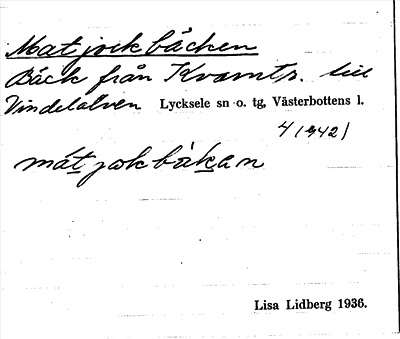 Matjockbäcken
Bäck från Kvarntr. till
Vindelälven Lycksele sn o. tg, Västerbottens l.
4/1942)
mát jok bäkan
Lisa Lidberg 1936.